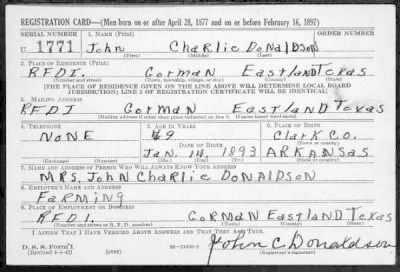 REGISTRATION CARD—(Men born on or after April 28, 1877 and on or before February 16, 1897)
SERIAL NUMBER 1. NAME (Print)
U 1771 John Charlie Donaldson
(First) (Middle) (Last)
2. PLACE OF RESIDENCE (Print)
RFD1. Gorman Eastland Texas
(Number and street) (Town, township, village, or city) (County) (State)
(THE PLACE OF RESIDENCE GIVEN ON THE LINE ABOVE WILL DETERMINE LOCAL BOARD
JURISDICTION; LINE 2 OF REGISTRATION CERTIFICATE WILL BE IDENTICAL)
3. MAILING ADDRESS
RFD1 Gorman Eastland Texas
(Mailing address if other than place indicated on line 2. If same insert word same)
4. TELEPHONE 5. AGE IN YEARS 6. PLACE OF BIRTH
NONE 49 Clark Co.
DATE OF BIRTH (Town or county)
JAN 14, 1893 ARKANSAS
(Exchange) (Number) (Mo.) (Day) (Yr.) (State or country)
7. NAME AND ADDRESS OF PERSON WHO WILL ALWAYS KNOW YOUR ADDRESS
MRS. JOHN CHARLIE DONALDSON
8. EMPLOYER'S NAME AND ADDRESS
FARMING
9. PLACE OF EMPLOYMENT OR BUSINESS
RFD1. GORMAN EASTLAND TEXAS
(Number and street or R. F. D. number) (Town) (County) (State)
I AFFIRM THAT I HAVE VERIFIED ABOVE ANSWERS AND THAT THEY ARE TRUE.
D. S. S. Form 1
(Revised 4-1-42) (over)
John C Donaldson
(Registrant's signature)